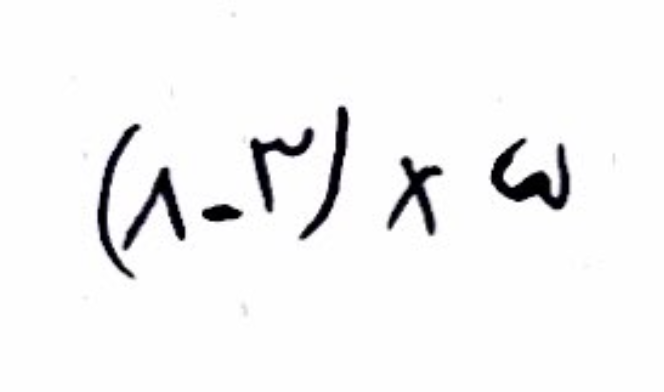 (۸-۳) × ۵